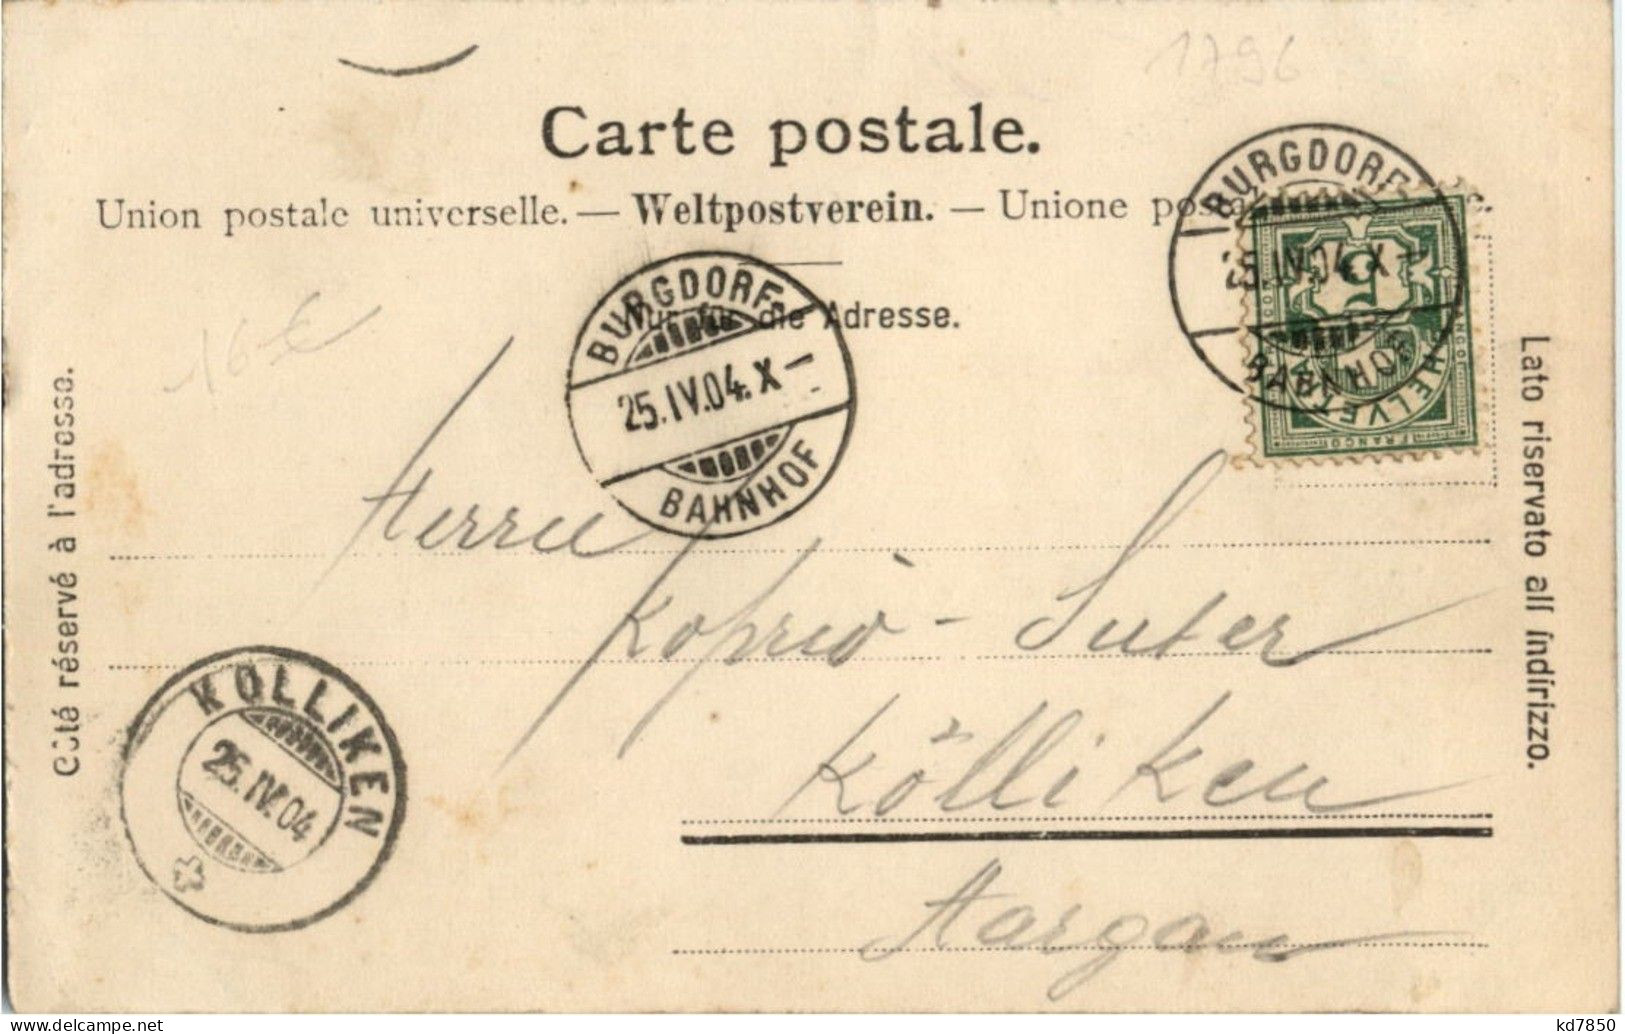 1796
Carte postale.
Union postale universelle. — Weltpostverein. — Unione postale
Nur für die Adresse.
BURGDORF
25.IV.04.X–
BAHNHOF
BURGDORF
25.IV.04.X–
BAHNHOF
5
HELVETIA
FRANCO
16 €
Côté réservé à l'adresse.
Lato riservato all indirizzo.
Herrn
Suter
Kölliken
Aargau
KÖLLIKEN
25.IV.04
kd7850